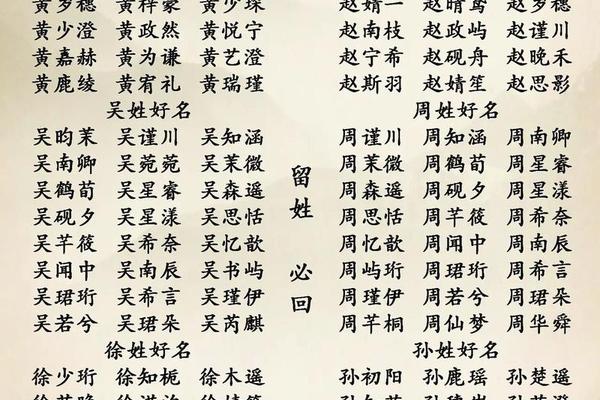 黄少澄 黄政然 黄悦宁
黄嘉赫 黄为谦 黄艺澄
黄鹿绫 黄宥礼 黄瑞瑾
吴姓好名
吴昀茉 吴谨川 吴知涵
吴南卿 吴菀菀 吴茉微
吴鹤荀 吴星睿 吴森遥
吴砚夕 吴星漾 吴思恬
吴芊筱 吴希奈 吴忆歆
吴闻中 吴南辰 吴书屿
吴珺珩 吴希言 吴瑾伊
吴若兮 吴珺朵 吴芮麒
徐姓好名
徐少珩 徐知栀 徐木遥
留姓 必回
赵婧一 赵晴鸢
赵南枝 赵政屿 赵谨川
赵宁希 赵砚舟 赵晚禾
赵斯羽 赵婧笙 赵思影
周姓好名
周谨川 周知涵 周南卿
周茉微 周鹤荀 周星睿
周森遥 周砚夕 周星漾
周思恬 周芊筱 周希奈
周忆歆 周闻中 周南辰
周屿珩 周珺珩 周希言
周瑾伊 周若兮 周珺朵
周芊桐 周仙梦 周华舜
孙姓好名
孙初阳 孙鹿瑶 孙楚遥